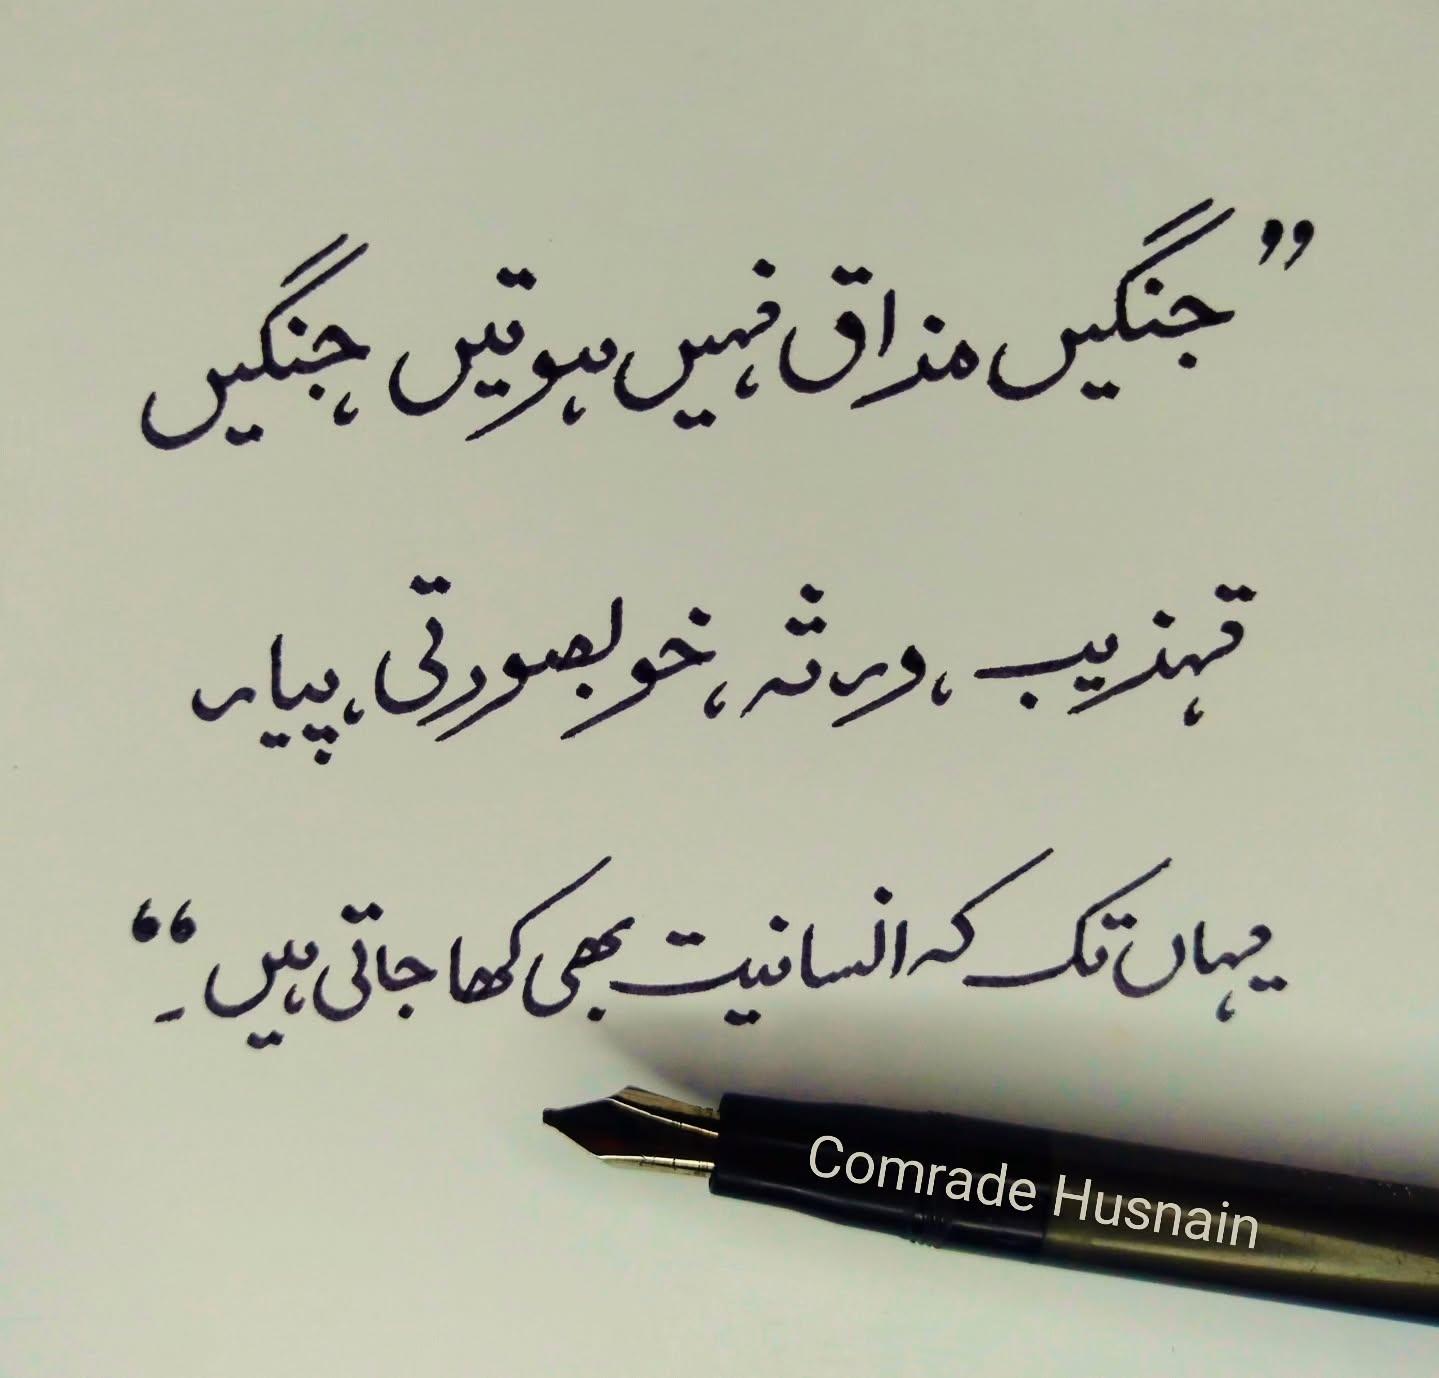 ”جنگیں مذاق نہیں ہوتیں جنگیں
تہذیب، ورثہ، خوبصورتی، پیار
یہاں تک کہ انسانیت بھی کھا جاتی ہیں۔“
Comrade Husnain